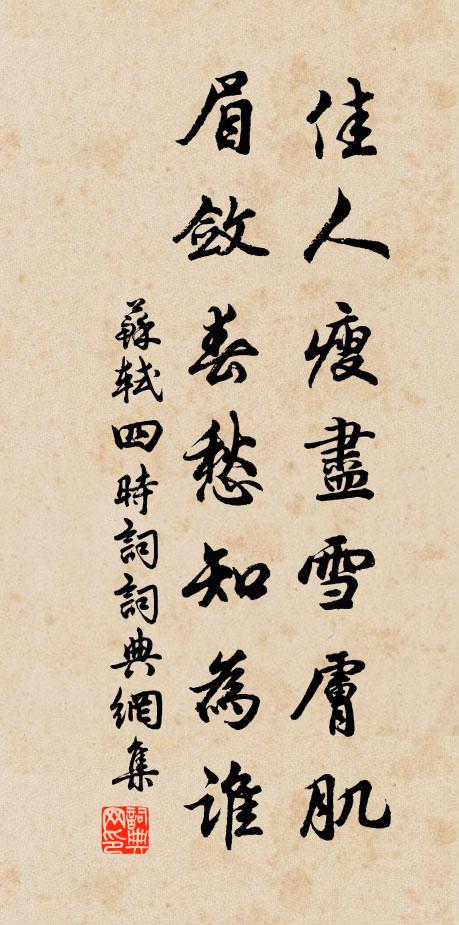 佳人瘦盡雪膚肌
眉斂春愁知為誰
蘇軾四時詞詞典網集
詞典網印